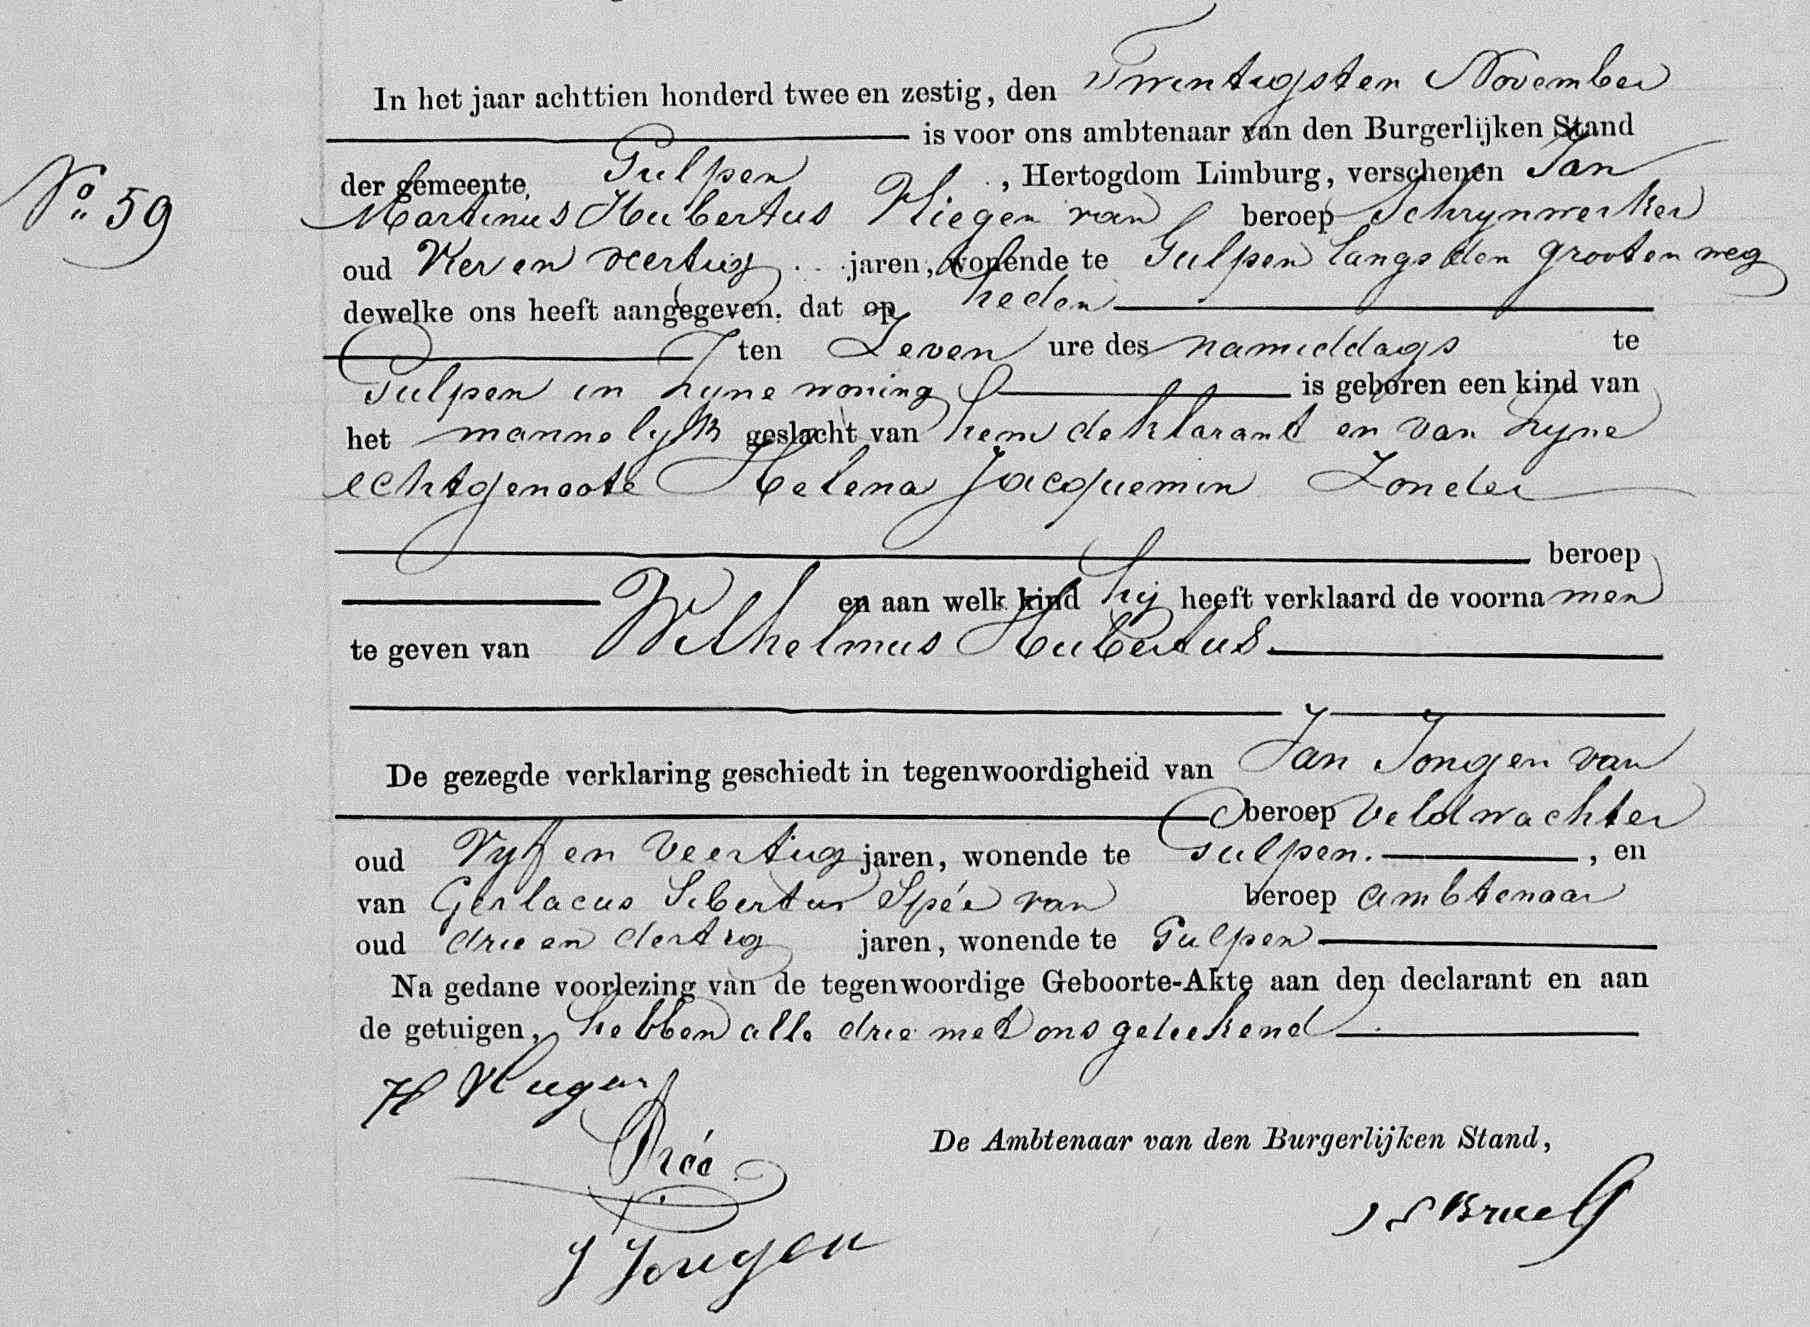 In het jaar achttien honderd twee en zestig, den Twintigsten November
is voor ons ambtenaar van den Burgerlijken Stand
der gemeente Gulpen, Hertogdom Limburg, verschenen Jan
No 59
Martinus Hubertus Vliegen van beroep Schrynwerker
oud Vier en veertig jaren, wonende te Gulpen langs den grooten weg
dewelke ons heeft aangegeven, dat op heden
ten Zeven ure des namiddags te
Gulpen in zyne woning is geboren een kind van
het mannelyk geslacht van hem deklarant en van zyne
echtgenoote Helena Jacquemin Zonder
beroep
en aan welk kind hij heeft verklaard de voornamen
te geven van Wilhelmus Hubertus
De gezegde verklaring geschiedt in tegenwoordigheid van Jan Jongen van
beroep Veldwachter
oud Vyf en Veertig jaren, wonende te Gulpen, en
van Gerlacus Sibertus Spée van beroep ambtenaar
oud drie en dertig jaren, wonende te Gulpen
Na gedane voorlezing van de tegenwoordige Geboorte-Akte aan den declarant en aan
de getuigen, hebben alle drie met ons geteekend
H Vliegen
De Ambtenaar van den Burgerlijken Stand,
J Jongen